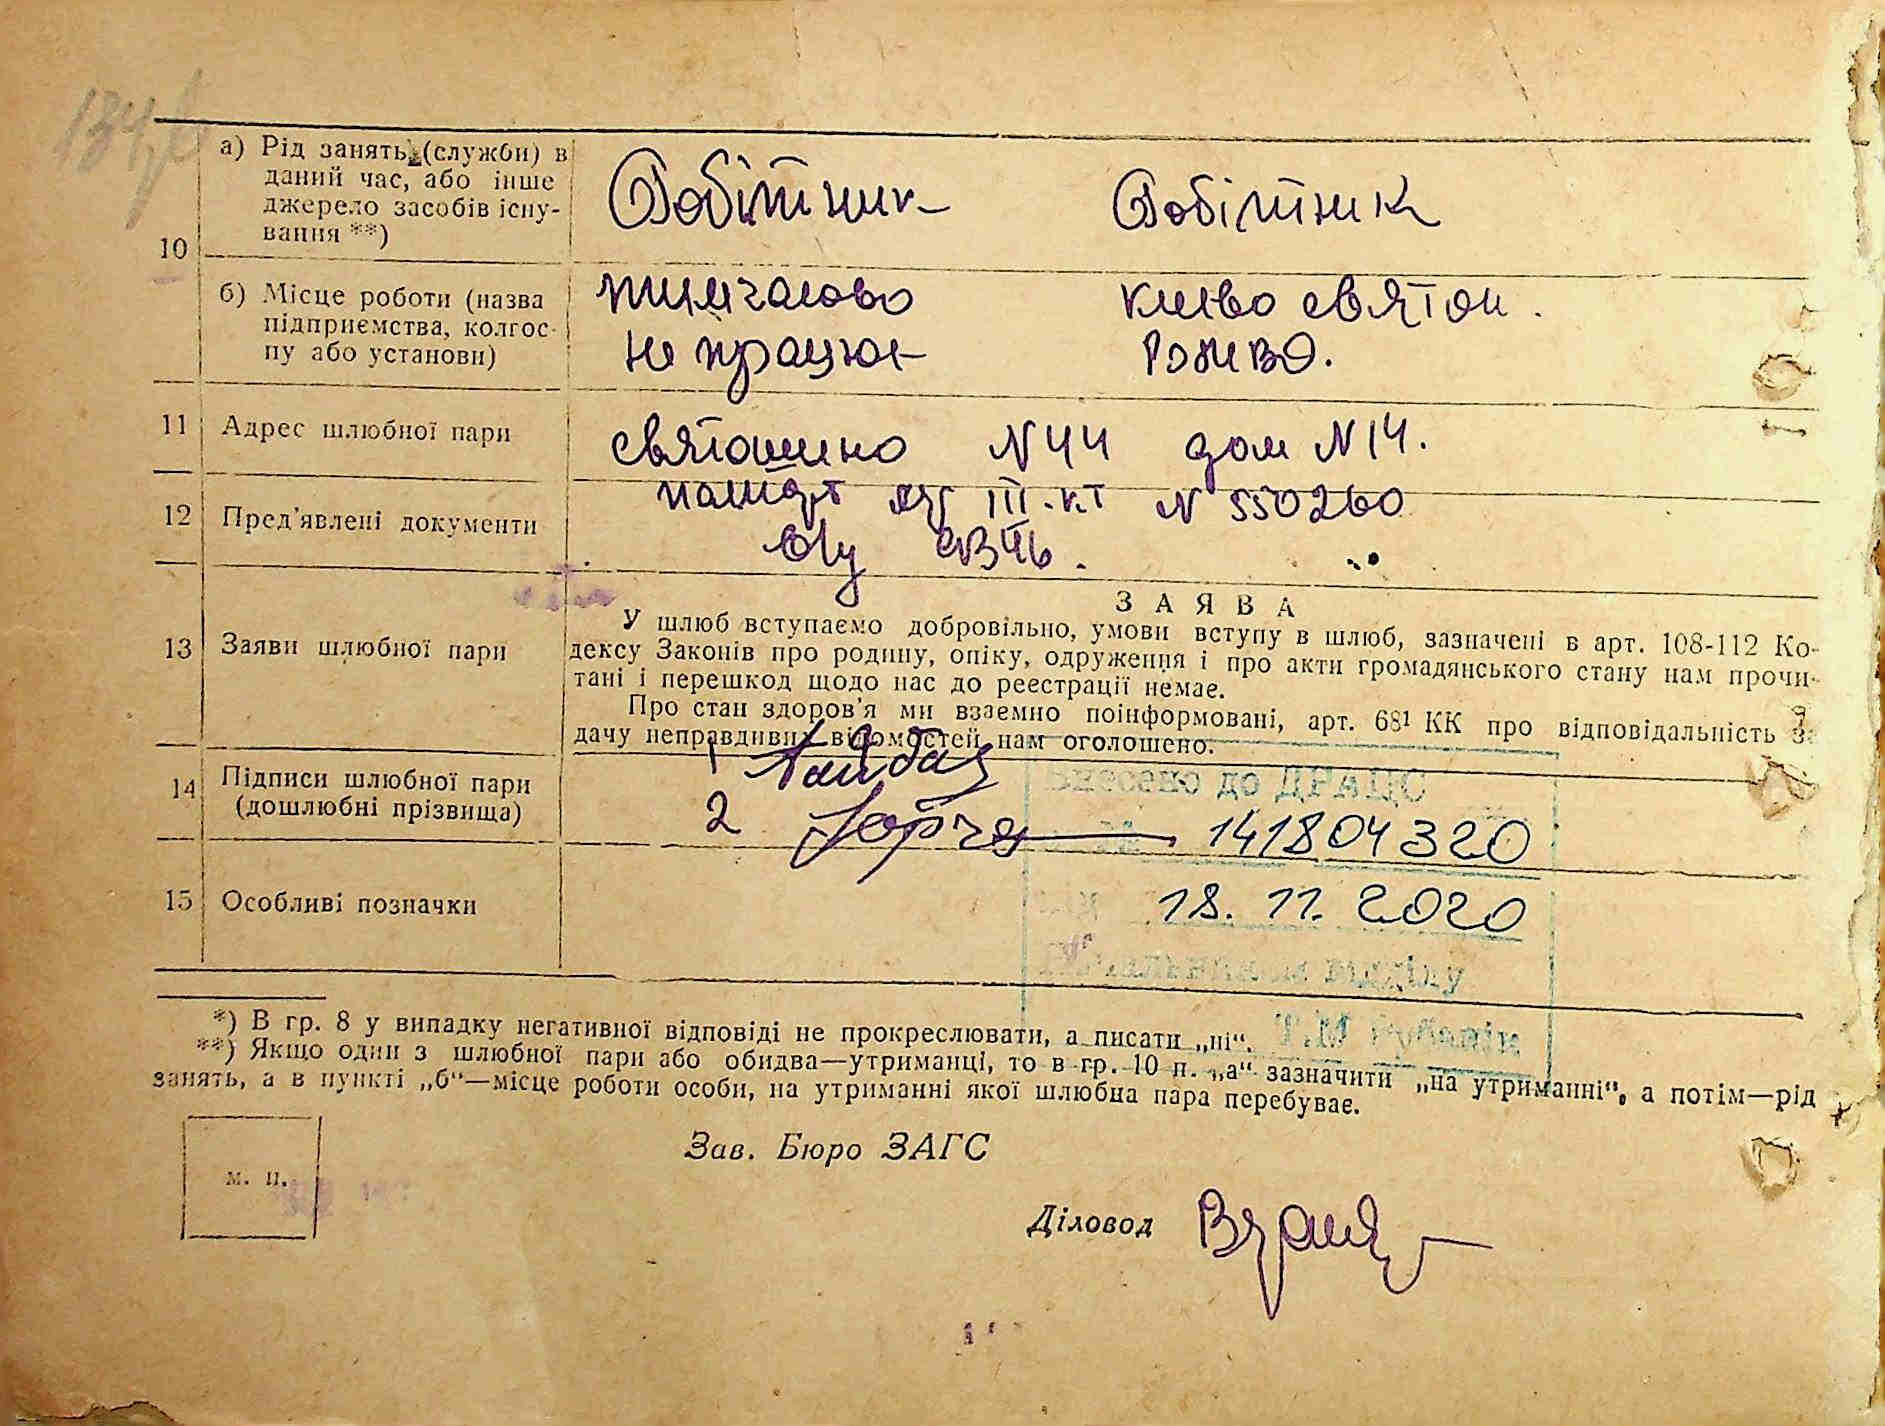 134
а) Рід занять (служби) в
даний час, або інше
джерело засобів існу-
вання **)
Робітник Робітник
10
б) Місце роботи (назва
підприємства, колгос-
пу або установи)
тимчасово
не працює
києво святош.
11 Адрес шлюбної пари
святошино N 44 дом N 14.
12 Пред'явлені документи
III N 550260
13 Заяви шлюбної пари
ЗАЯВА
У шлюб вступаємо добровільно, умови вступу в шлюб, зазначені в арт. 108-112 Ко-
дексу Законів про родину, опіку, одруження і про акти громадянського стану нам прочи-
тані і перешкод щодо нас до реестрації немає.
Про стан здоров'я ми взаємно поінформовані, арт. 68¹ КК про відповідальність за
дачу неправдивих відомостей нам оголошено.
14 Підписи шлюбної пари
(дошлюбні прізвища)
1
2
внесено до ДРАЦС
141804320
15 Особливі позначки
18. 11. 2020
Начальник відділу
*) В гр. 8 у випадку негативної відповіді не прокреслювати, а писати „ні“.
**) Якщо один з шлюбної пари або обидва—утриманці, то в гр. 10 п. „а“ зазначити „на утриманні“, а потім—рід
занять, а в пункті „б“—місце роботи особи, на утриманні якої шлюбна пара перебуває.
м. п.
Зав. Бюро ЗАГС
Діловод